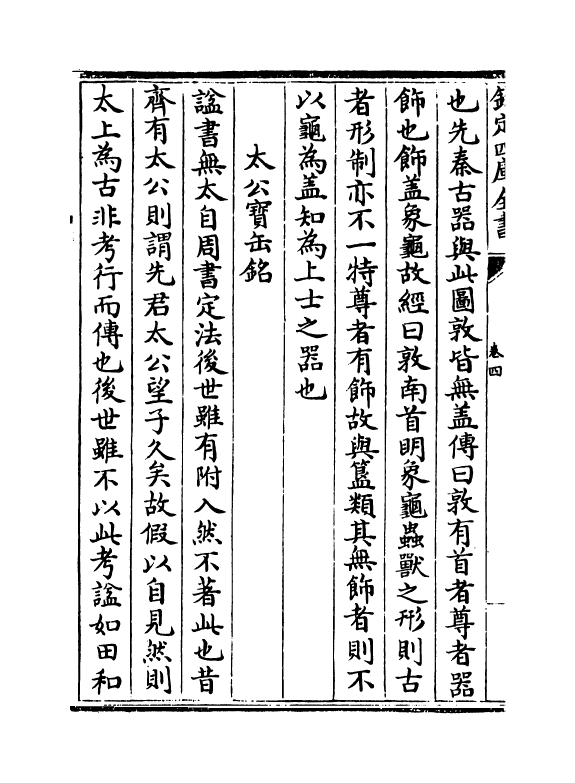 欽定四庫全書
卷四
也先秦古器與此圖敦皆無蓋傳曰敦有首者尊者器
飾也飾盖象龜故經曰敦南首明象龜蟲獸之形則古
者形制亦不一特尊者有飾故與簋類其無飾者則不
以龜為盖知為上士之器也
太公寶缶銘
諡書無太自周書定法後世雖有附入然不著此也昔
齊有太公則謂先君太公望子久矣故假以自見然則
太上為古非考行而傳也後世雖不以此考諡如田和